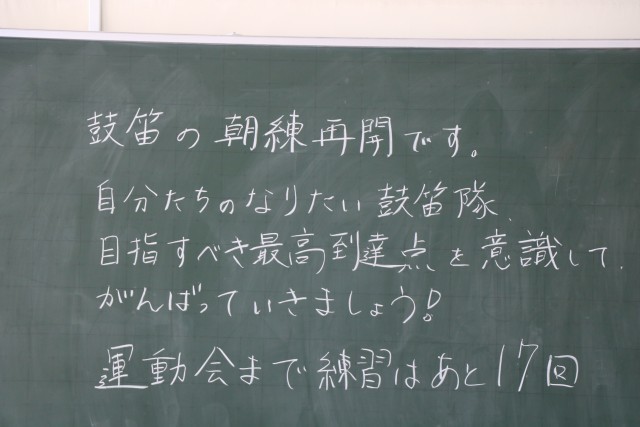 鼓笛の朝練再開です。
自分たちのなりたい鼓笛隊、
目指すべき最高到達点を意識して、
がんばっていきましょう!
運動会まで練習はあと17回